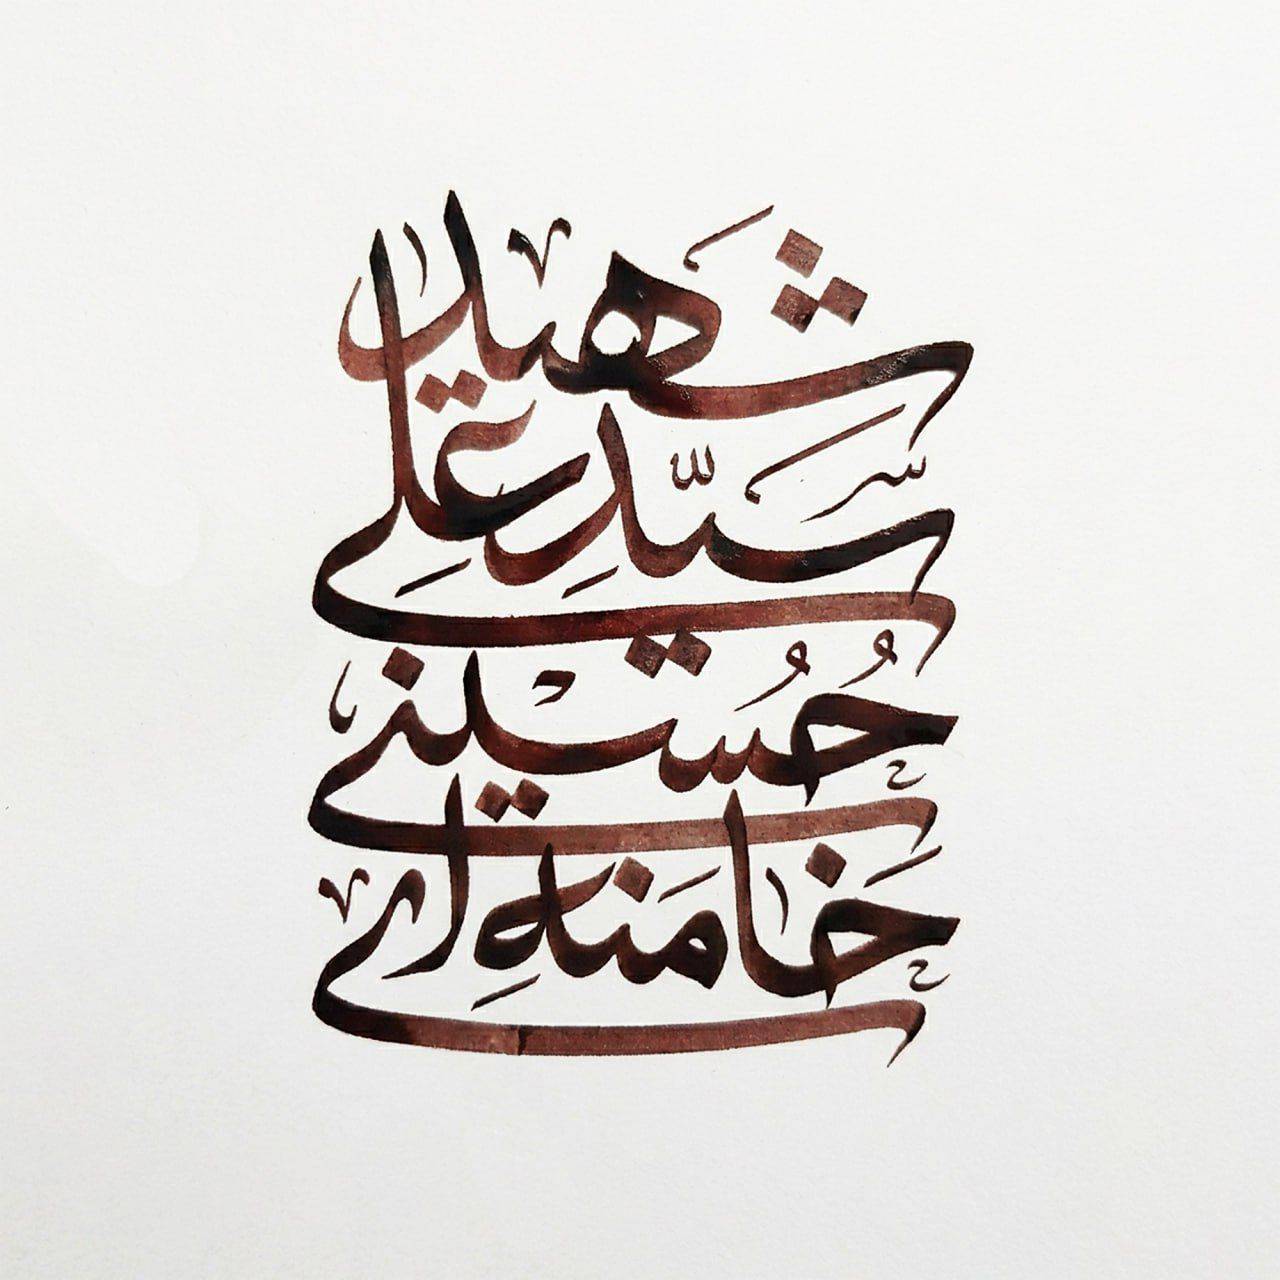 شهید
سَیِّدِ عَلِی
حُسَیْنی
خَامَنِهِ ای